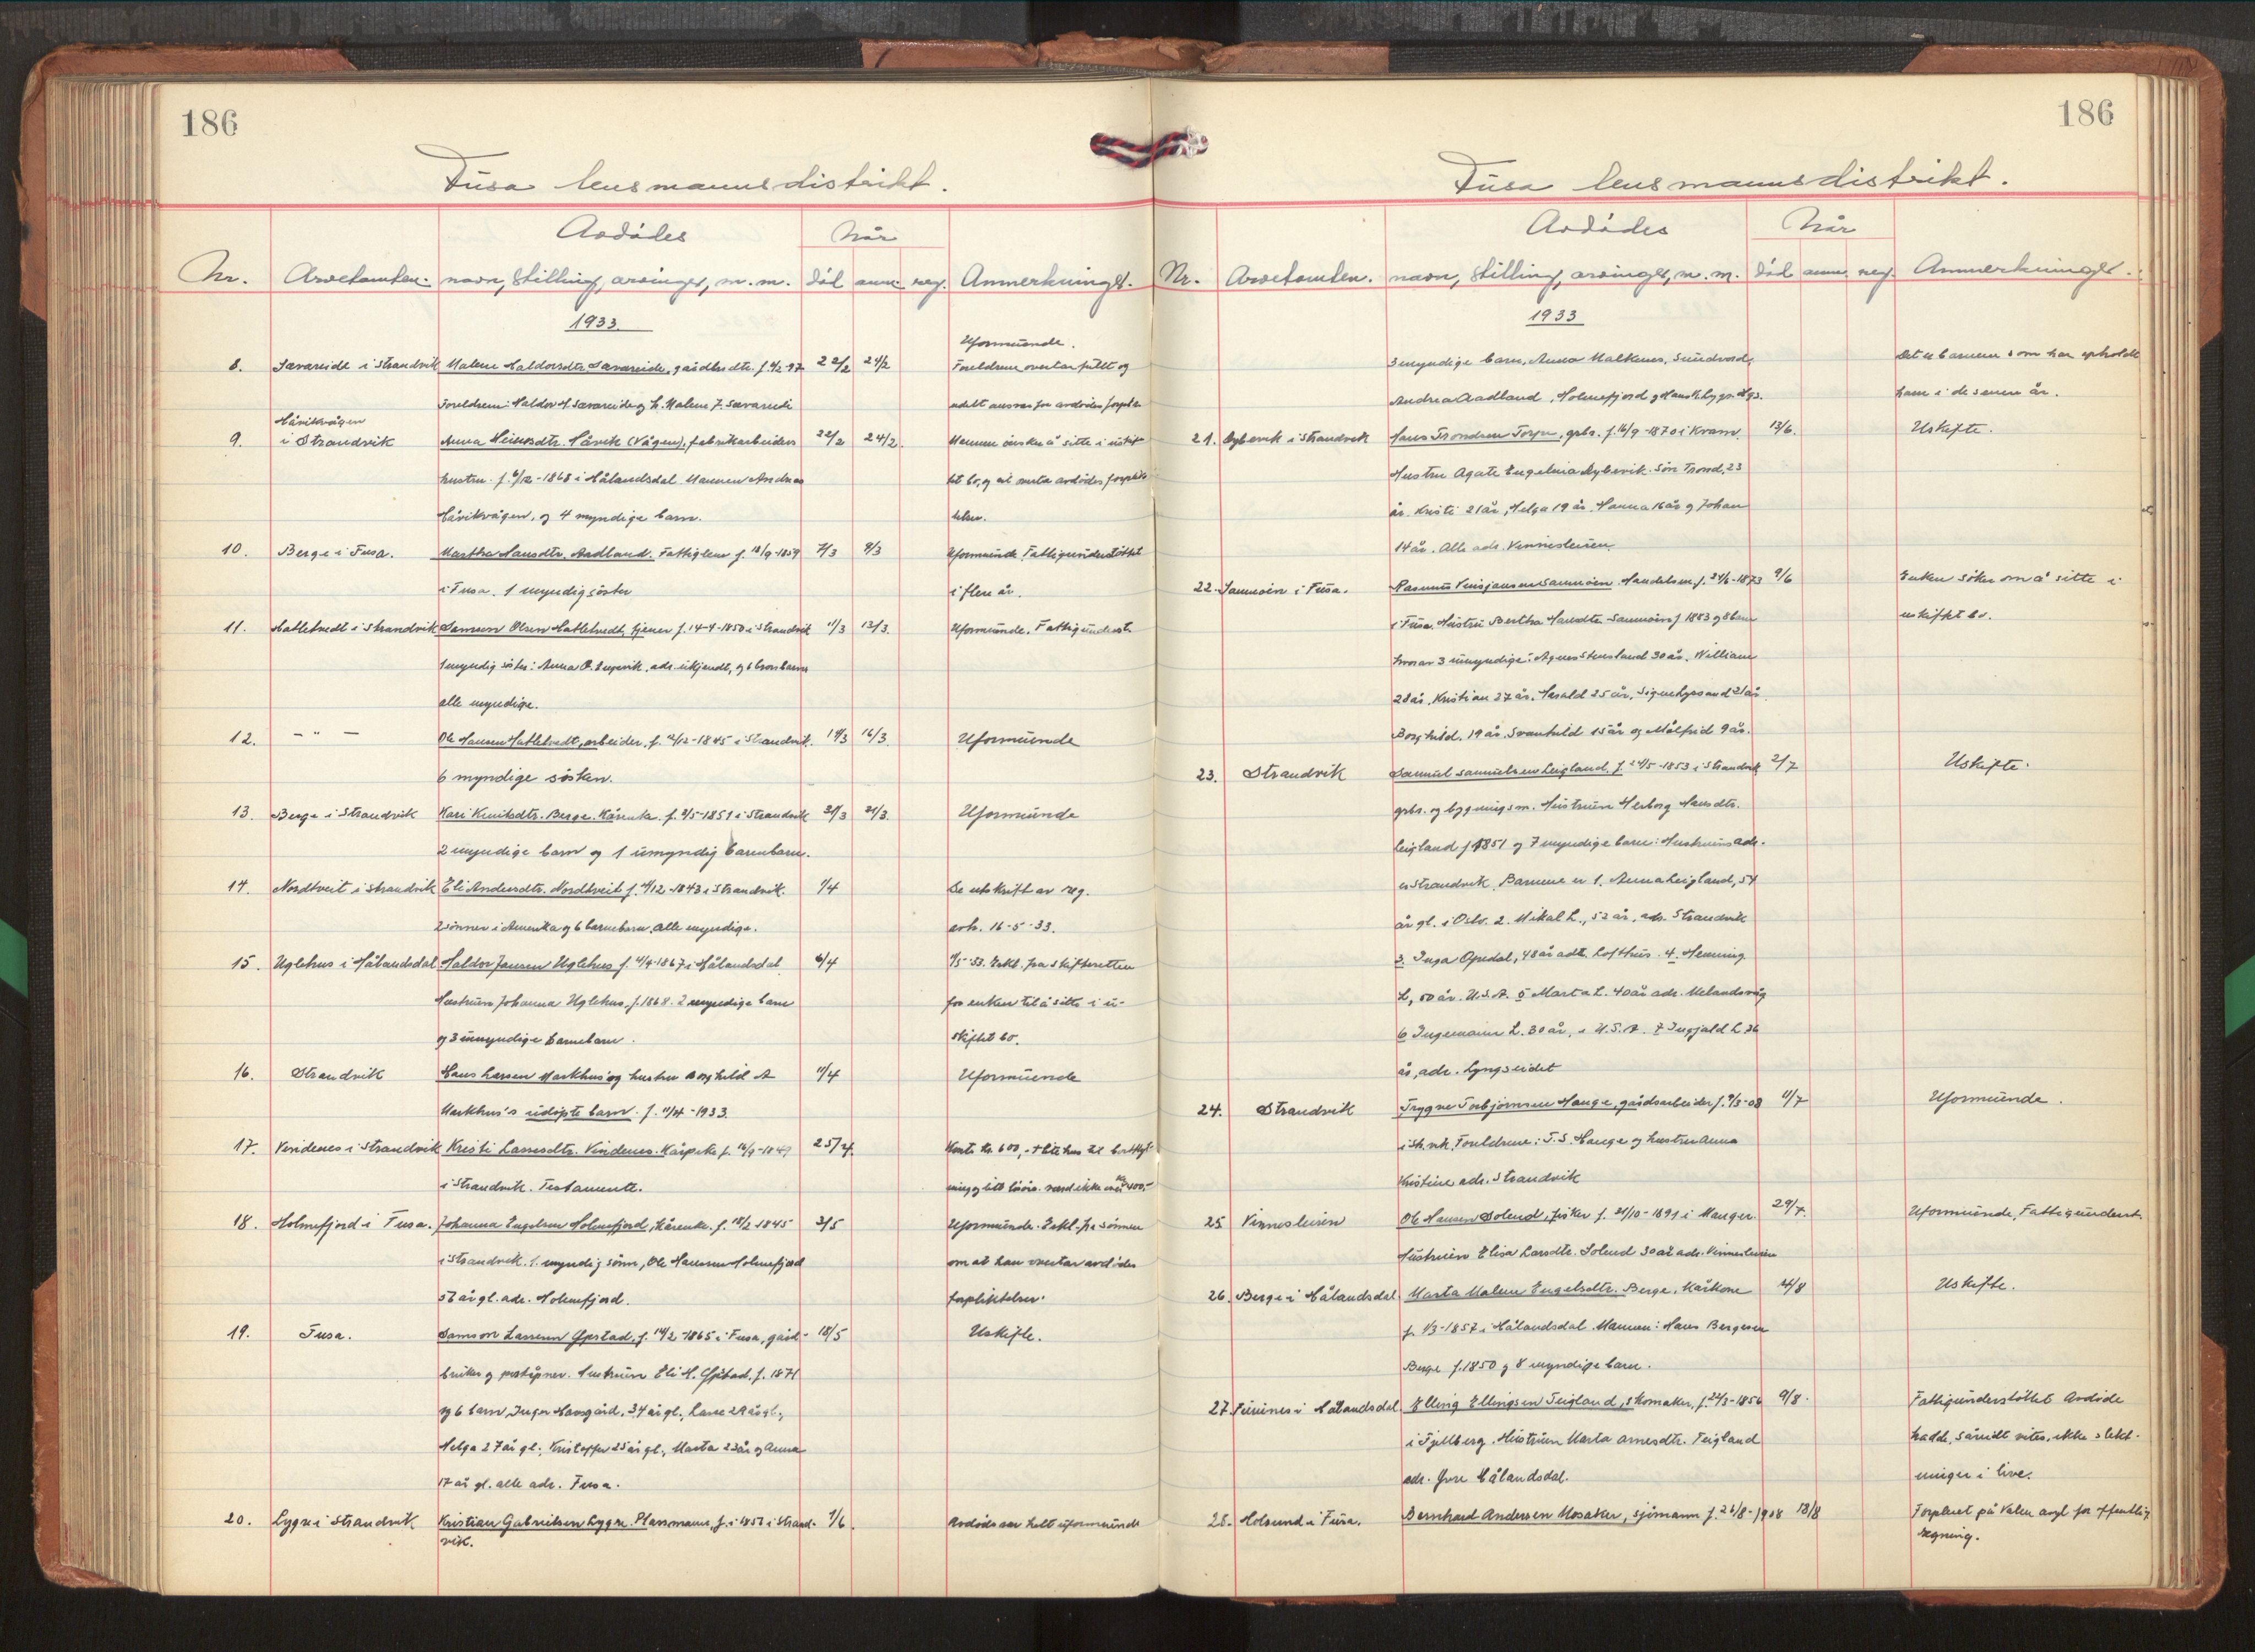 186
Fusa lensmannsdistrikt.
Avdødes
Når
Nr. Arvetomten. navn, stilling, arvinger, m. m. død anm. reg. Anmerkninger.
1933
Uformuende.
8. Sævareide i Strandvik Malene Haldorsdtr. Sævareide, gårdbr. dtr. f. 4/2-97 22/2 24/2 Foreldrene overtar fullt og
Foreldrene: Haldor H. Sævareide og h. Malene J. Sævareide udelt ansvar for avdødes forplik
Håvikvågen
9. i Strandvik Anna Heinesdtr. Håvik (Vågen), fabrikarbeiders 22/2 24/2. Mannen ønsker å sitte i uskif
hustru. f. 6/12-1868 i Hålandsdal. Mannen Andreas tet bo, og vil svare avdødes forplik
Håvikvågen, og 4 myndige barn. telser.
10. Berge i Fusa. Martha Hansdtr. Aadland. Fattiglem f. 18/9-1859 7/3 9/3 Uformuende. Fattigunderstøttet
i Fusa. 1 myndig søster i flere år.
11. Hatletvedt i Strandvik Samson Olsen Hatletvedt, tjener f. 14-4-1850 i Strandvik 11/3 13/3. Uformuende. Fattigunderst.
1 myndig søster: Anna O. Engevik, adr. ukjendt, og 6 brorsbarn
alle myndige.
12. - " - Ole Hansen Hatletvedt, arbeider, f. 2/12-1845 i Strandvik. 14/3 16/3. Uformuende
6 myndige søsken.
13. Berge i Strandvik Kari Knutsdtr. Berge. Kårenke. f. 2/5-1851 i Strandvik 20/3 21/3. Uformuende
2 myndige barn og 1 umyndig barnebarn.
14. Nordtveit i Strandvik Eli Andersdtr. Nordtveit f. 4/12-1843 i Strandvik. 1/4 Se utskrift av reg.
2 sønner i Amerika og 6 barnebarn, alle myndige. avh. 16-5-33.
15. Uglehus i Hålandsdal Haldor Jansen Uglehus f. 4/4-1867 i Hålandsdal. 6/4 9/5-33. Erkl. fra skifteretten
Hustruen Johanna Uglehus, f. 1868. 2 myndige barn for enken til å sitte i u-
og 3 umyndige barnebarn. skiftet bo.
16. Strandvik Hans Larsen Markhus' og hustru Borghild A 11/4 Uformuende
Markhus's udøpte barn. f. 11/4-1933.
17. Vindenes i Strandvik Kristi Larsesdtr. Vindenes. Kårpike f. 16/9-1849 25/4. Kont. kr. 600,- + lite hus til bortflyt-
i Strandvik. Testamente. ning og litt løsøre. verd ikke over kr 400,-
18. Holmefjord i Fusa. Johanna Engelsen Holmefjord, kårenke. f. 18/2 1845 3/5 Uformuende. Erkl. fra sønnen
i Strandvik. 1. myndig sønn, Ole Hansen Holmefjord om at han overtar avdødes
57 år gl. adr. Holmefjord. forpliktelser.
19. Fusa. Samson Larsen Gjøstad, f. 14/2-1865 i Fusa, gård- 18/5 Uskifte.
bruker og poståpner. Hustruen Eli H. Gjøstad, f. 1871
og 6 barn, Inger Havsgård, 34 år gl., Lasse 29 år gl.,
Helga 27 år gl., Kristoffer 25 år gl., Marta 23 år og Anna
17 år gl. alle adr. Fusa.
20. Lygre i Strandvik Kristian Gabrielsen Lygre. Plassmann, f. i 1851 i Strand- 1/6. Avdøde var helt uformuende
vik.
186
Fusa lensmannsdistrikt.
Avdødes
Når
Nr. Arvetomten. navn, stilling, arvinger, m. m. død anm. reg. Anmerkninger.
1933
3 myndige barn, Anna Malkenes, Sundvord, Det er barnene som har opholdt
Andrea Aadland, Holmefjord og Hans h. bygn. Hgs. ham i de senere år.
21. Nybervik i Strandvik Hans Trondsen Torpe, gbr. f. 16/9-1870 i Kvam. 13/6. Uskifte.
Hustru Agate Engelnia Nybervik. Søn Trond, 23
år. Kristi 21 år, Helga 19 år. Hanna 16 år og Johan
14 år. Alle adr. Vinnesleiren.
22. Samnøen i Fusa. Rasmus Vinsjansen Samnøen. Handelsm. f. 24/6-1873 9/6 Enken søker om å sitte i
i Fusa. Hustru Bertha Hansdtr. Samnøen f 1883 og 8 barn uskiftet bo.
hvorav 3 umyndige: Agnes Stensland 30 år. William
28 år, Kristian 27 år. Harald 25 år, Signe Lyssand 21 år.
Borghild. 19 år. Svanhild 15 år og Målfrid 9 år.
23. Strandvik Samuel Samuelsen Leigland. f. 24/5-1853 i Strandvik 2/7 Uskifte.
gbr. og bygningsm. Hustruen Herborg Hansdtr.
Leigland f 1851 og 7 myndige barn: Hustruens adr.
er Strandvik. Barnene er 1. Anna Leigland, 54
år gl. i Oslo. 2. Mikal L., 52 år, adr. Strandvik
3. Inga Opedal, 48 år adr. Lofthus. 4. Henning
L, 50 år. U.S.A. 5 Marta L. 40 år adr. Melandsvåg
6 Ingemann L. 30 år, i U.S.A. 7 Ingjald L 36
år, adr. Lyngseidet
24. Strandvik Trygve Torbjørnsen Hauge, gårdsarbeider f. 9/3-08 11/7 Uformuende.
i Str.vik. Foreldrene: T. S. Hauge og hustru Anna
Kristine adr. Strandvik
25. Vinnesleiren Ole Hansen Solend, fisker f. 21/10-1891 i Manger. 29/7. Uformuende, Fattigunderst.
Hustruen Elisa Larsdtr. Solend 30 år adr. Vinnesleiren
26. Berge i Hålandsdal Marta Malene Engelsdtr. Berge, Kårkone 14/8 Uskifte.
f. 1/3-1857 i Hålandsdal. Mannen: Hans Bergesen
Berge f. 1850 og 8 myndige barn.
27. i Hålandsdal. Elling Ellingsen Teigland, skomaker, f. 22/3-1856 9/8. Fattigunderstøttet. Avdøde
i Fjellberg. Hustruen Marta Arnesdtr. Teigland hadde, såvidt vites, ikke slekt-
adr. Øvre Hålandsdal. ninger i live.
28. Holsund i Fusa. Bernhard Andersen Mosaker, sjømann f. 26/8-1908 18/8 Forpleiet på Valen asyl for offentlig
regning.